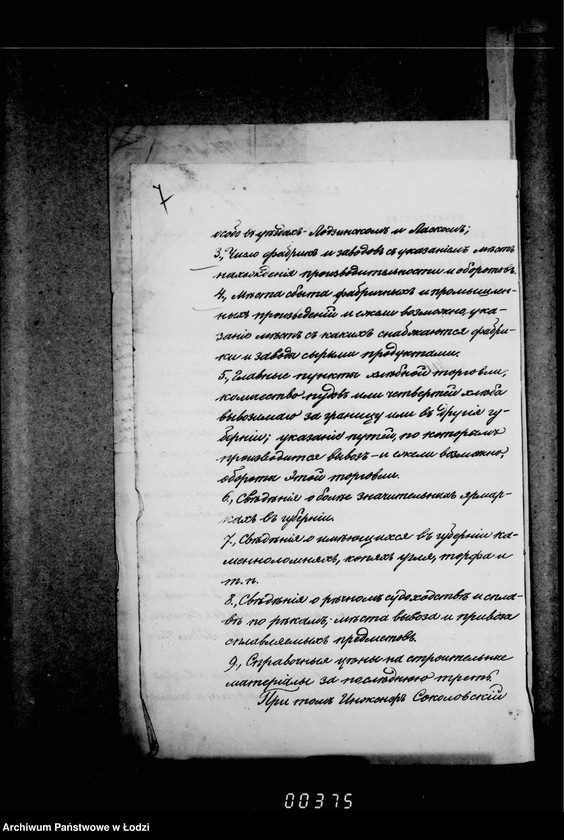 7
особо въ уѣздахъ - Лодзинскомъ и Ласкомъ;
3, Число фабрикъ и заводовъ съ указаніемъ мѣстъ
нахожденія производительности и оборотовъ.
4, Мѣста сбыта фабричныхъ и промышлен-
ныхъ произведеній и ежели возможно, ука-
заніе мѣстъ съ какихъ снабжаются фабри-
ки и заводы сырыми продуктами.
5, Главные пункты хлѣбной торговли,
количество пудовъ или четвертей хлѣба
вывозимаго за границу или въ другія гу-
берніи; указаніе путей, по которымъ
производится вывозъ - и ежели возможно
обороты этой торговли.
6, Свѣдѣнія о болѣе значительныхъ ярмар-
кахъ въ губерніи.
7, Свѣдѣнія о имѣющихся въ губерніи ка-
менноломняхъ, копяхъ угля, торфа и
т. п.
8, Свѣдѣнія о рѣчномъ судоходствѣ и спла-
вѣ по рѣкамъ; мѣста вывоза и привоза
сплавляемыхъ предметовъ.
9, Справочныя цѣны на строительные
матеріалы за послѣднюю треть.
При томъ Инженеръ Соколовскій
00375
Archiwum Państwowe w Łodzi